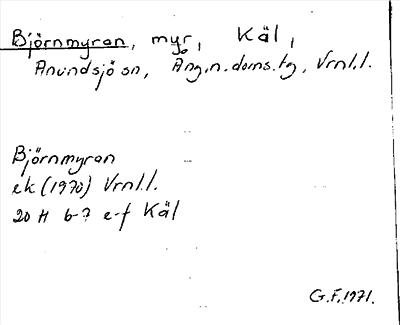 Björnmyran, myr, Käl,
Anundsjö sn, Ång.n.doms.tg, Vrnl.l.
Björnmyran
ek (1970) Vrnl.l.
20 H 6-7 e-f Käl
G.F. 1971.